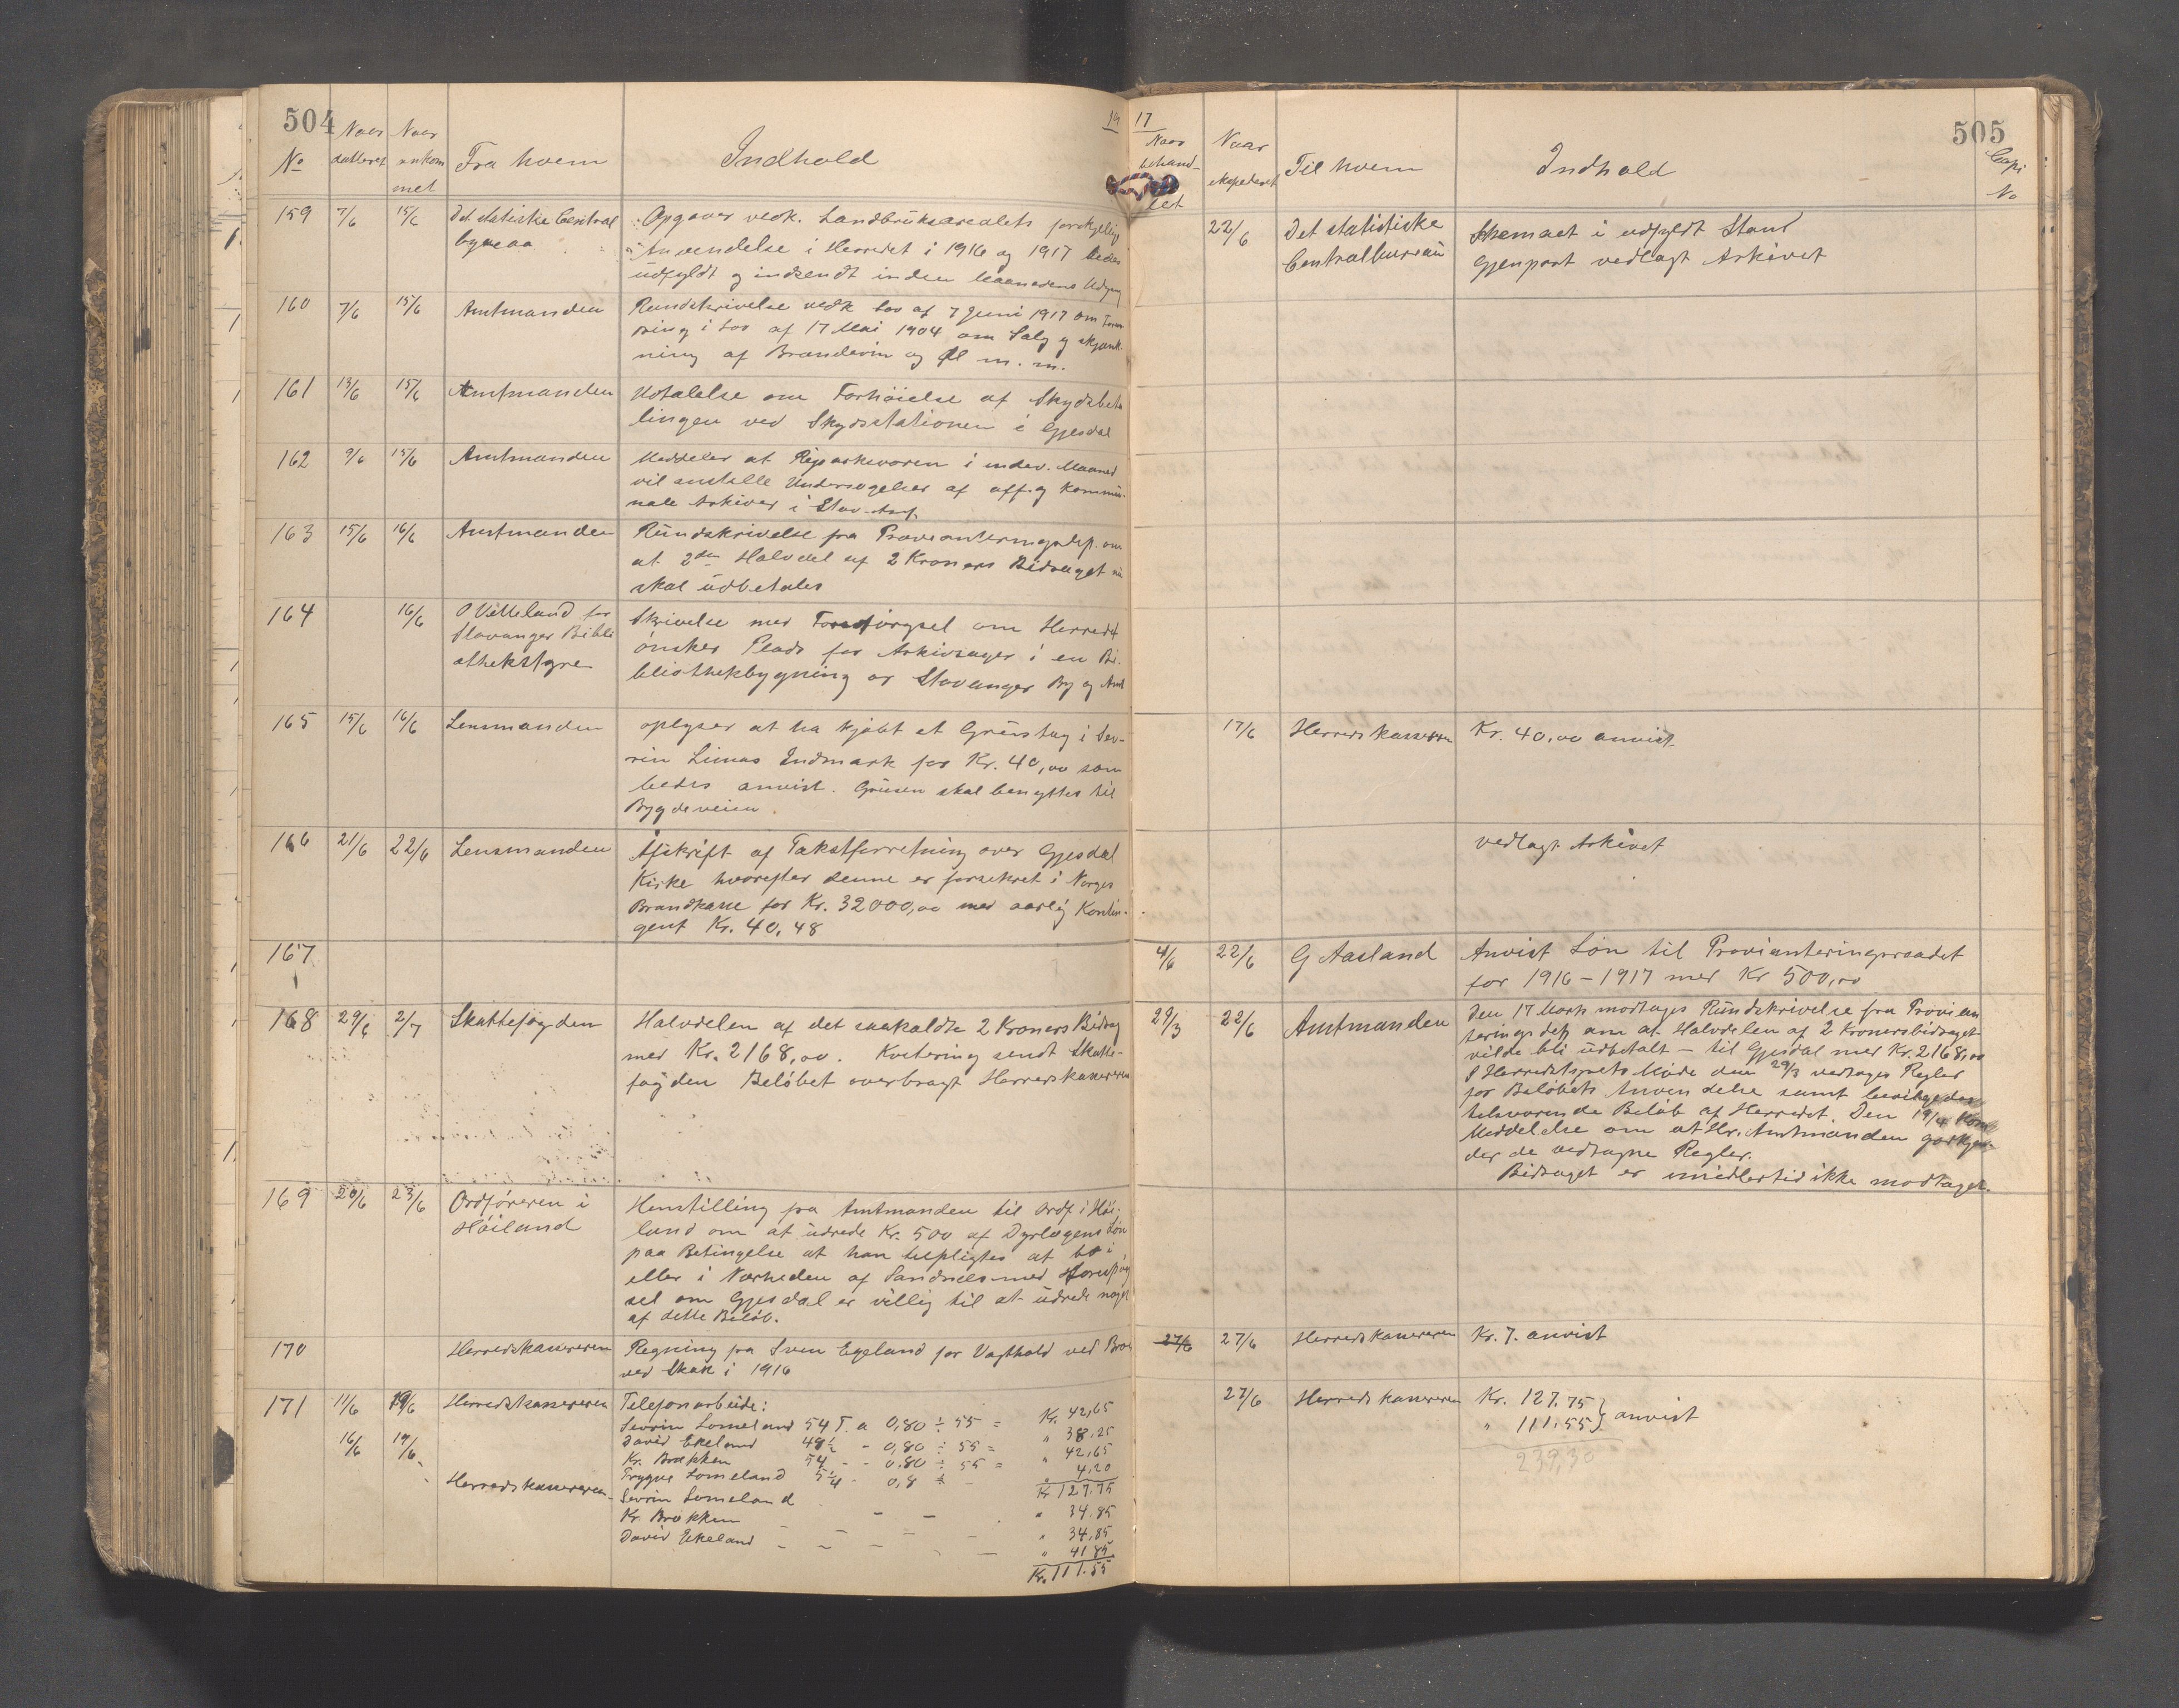 504
19
17
505
No
Naar datteret
Naar ankommet
Fra hvem
Indhold
Naar behandlet
Naar ekspederet
Til hvem
Indhold
Copi No
159 7/6 15/6 Det statistiske Central
byraa
Opgaver vedk. Landbruksarealets forskjellig
Anvendelse i Herredet i 1916 og 1917 bedes
udfyldt og indsendt inden Maanedens Udgang
22/6 Det statistiske
Centralbureau
Skemaet i udfyldt Stand
Gjenpart vedlagt Arkivet
160 7/6 15/6 Amtmanden
Rundskrivelse vedk Lov af 7 Juni 1917 om Foran
dring i Lov af 17 Mai 1904 om Salg og skjænk-
ning af Brændevin og Øl m. m.
161 13/6 15/6 Amtmanden
Udtalelse om Forhöielse af Skydsbeta
lingen ved Skydsstationen i Gjesdal
162 9/6 15/6 Amtmanden
Meddeler at Rigsarkivaren i indev. Maaned
vil anstille Undersøgelser af off. og kommu-
nale Arkiver i Stav. Amt.
163 15/6 16/6 Amtmanden
Rundskrivelse fra Provianteringsdep. om
at 2den Halvdel af 2 Kroners Bidraget nu
skal udbetales
164 16/6 O Vetteland for
Stavanger Bibli
othekstyre
Skrivelse med Forespörgsel om Herredet
ønsker Plads for Arkivsager i en Bi-
bliothekbygning for Stavanger By og Amt
165 15/6 16/6 Lensmanden
oplyser at ha kjöbt et Grustag i Sev-
rin Limas Indmark for Kr. 40,00 som
bedes anvist. Grusen skal benyttes til
Bygdeveien.
17/6 Herredskassereren
Kr. 40,00 anvist
166 21/6 22/6 Lensmanden
Afskrift af Takstforretning over Gjesdal
Kirke hvorefter denne er forsekret i Norges
Brandkasse for Kr. 32000,00 med aarlig Kontin-
gent Kr. 40,48
vedlagt Arkivet
167
4/6 22/6 G Aasland
Anvist Lön til Provianteringsraadet
for 1916-1917 med Kr 500,00
168 29/6 2/7 Skattefogden
Halvdelen af det saakaldte 2 Kroners Bidrag
med Kr. 2168,00. Kvitering sendt Skatte-
fogden Belöbet overbragt Herredskassereren
29/3 22/6 Amtmanden
Den 17 Marts modtages Rundskrivelse fra Provian
teringsdep om at Halvdelen af 2 Kronersbidraget
vilde bli udbetalt - til Gjesdal med Kr. 2168,00
I Herredstyrets Möde den 29/3 vedtages Regler
for Belöbets Anvendelse samt bevilgedes
tilsvarende Belöb af Herredet. Den 19/4 kom
Meddelelse om at Hr. Amtmanden godkjen-
der de vedtagne Regler.
Bidraget er imidlertid ikke modtaget.
169 20/6 23/6 Ordföreren i
Höiland
Henstilling fra Amtmanden til Ordf. i Höi-
land om at udrede Kr. 500 af Dyrlægens Lön
paa Betingelse at han tilpligtes at bo i
eller i Nærheden af Sandnes med Forespörg
sel om Gjesdal er villig til at udrede noget
af dette Belöb.
170 Herredskassereren
Regning fra Sven Egeland for Vagthold ved Bro
ved Skak i 1916
27/6 27/6 Herredskassereren
Kr. 7. anvist
171 11/6 19/6 Herredskassereren
Telefonarbeide:
Sevrin Lomeland 54 T. a 0,80 ÷ 55 = Kr. 42,65
David Ekeland 48½ - 0,80 ÷ 55 = " 38,25
Kr. Brekken 54 - - 0,80 ÷ 55 = " 42,65
Trygve Lomeland 5¼ - 0,8 " 4,20
Kr 127.75
16/6 19/6 Herredskassereren
Sevrin Lomeland " 34.85
Kr. Brekken " 34,85
David Ekeland " 41 85
Kr. 111.55
27/6 Herredskassereren
Kr. 127.75
" 111.55 } anvist
239,30